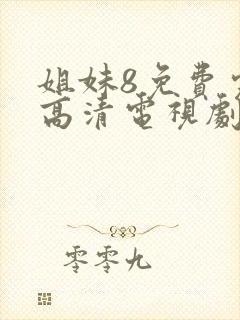 姐妹8免費
高清電視劇
零零九